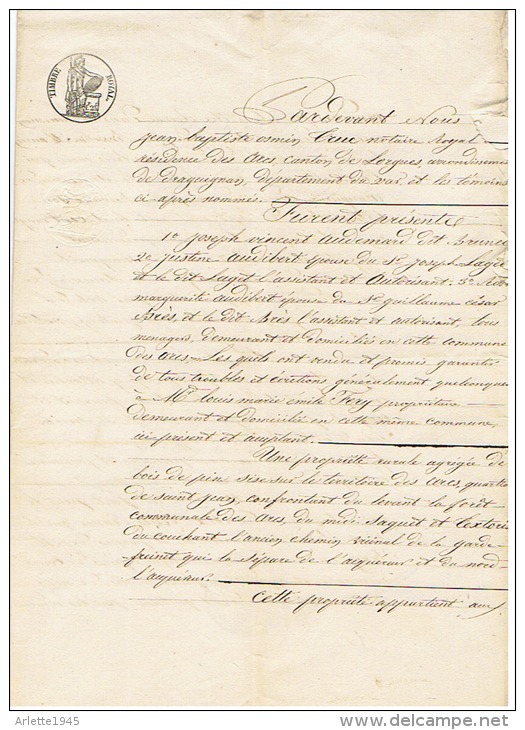 TIMBRE ROYAL
Pardevant Nous
Jean Baptiste osmin notaire Royal
résidence des Arcs, canton de Lorgues, arrondissement
de Draguignan, département du Var, et les témoins
ci après nommés.
Furent présents
1o Joseph vincent Audemard dit Brunet
2o Justine Audibert épouse du Sr Joseph
et le dit l'assistant et Autorisant. 3o
marguerite audibert épouse de Sr guillaume césar
et le dit l'assistant et autorisant, tous
ménagers, demeurant et domiciliés en cette commune
des Arcs. Les quels ont vendu et promis garantir
de tous troubles et évictions généralement quelconques
à Mr Louis marie émile propriétaire
demeurant et domicilié en cette même commune,
ici présent et acceptant.
Une propriété rurale agrégée de
bois de pin sise sur le territoire des Arcs, quartier
de saint Jean, confrontant du levant la forêt
communale des Arcs, du midi et
du couchant l'ancien chemin vicinal de la garde
freinet qui la sépare de l'acquéreur et du nord
l'acquéreur.
Cette propriété appartient aux
Arlette1945